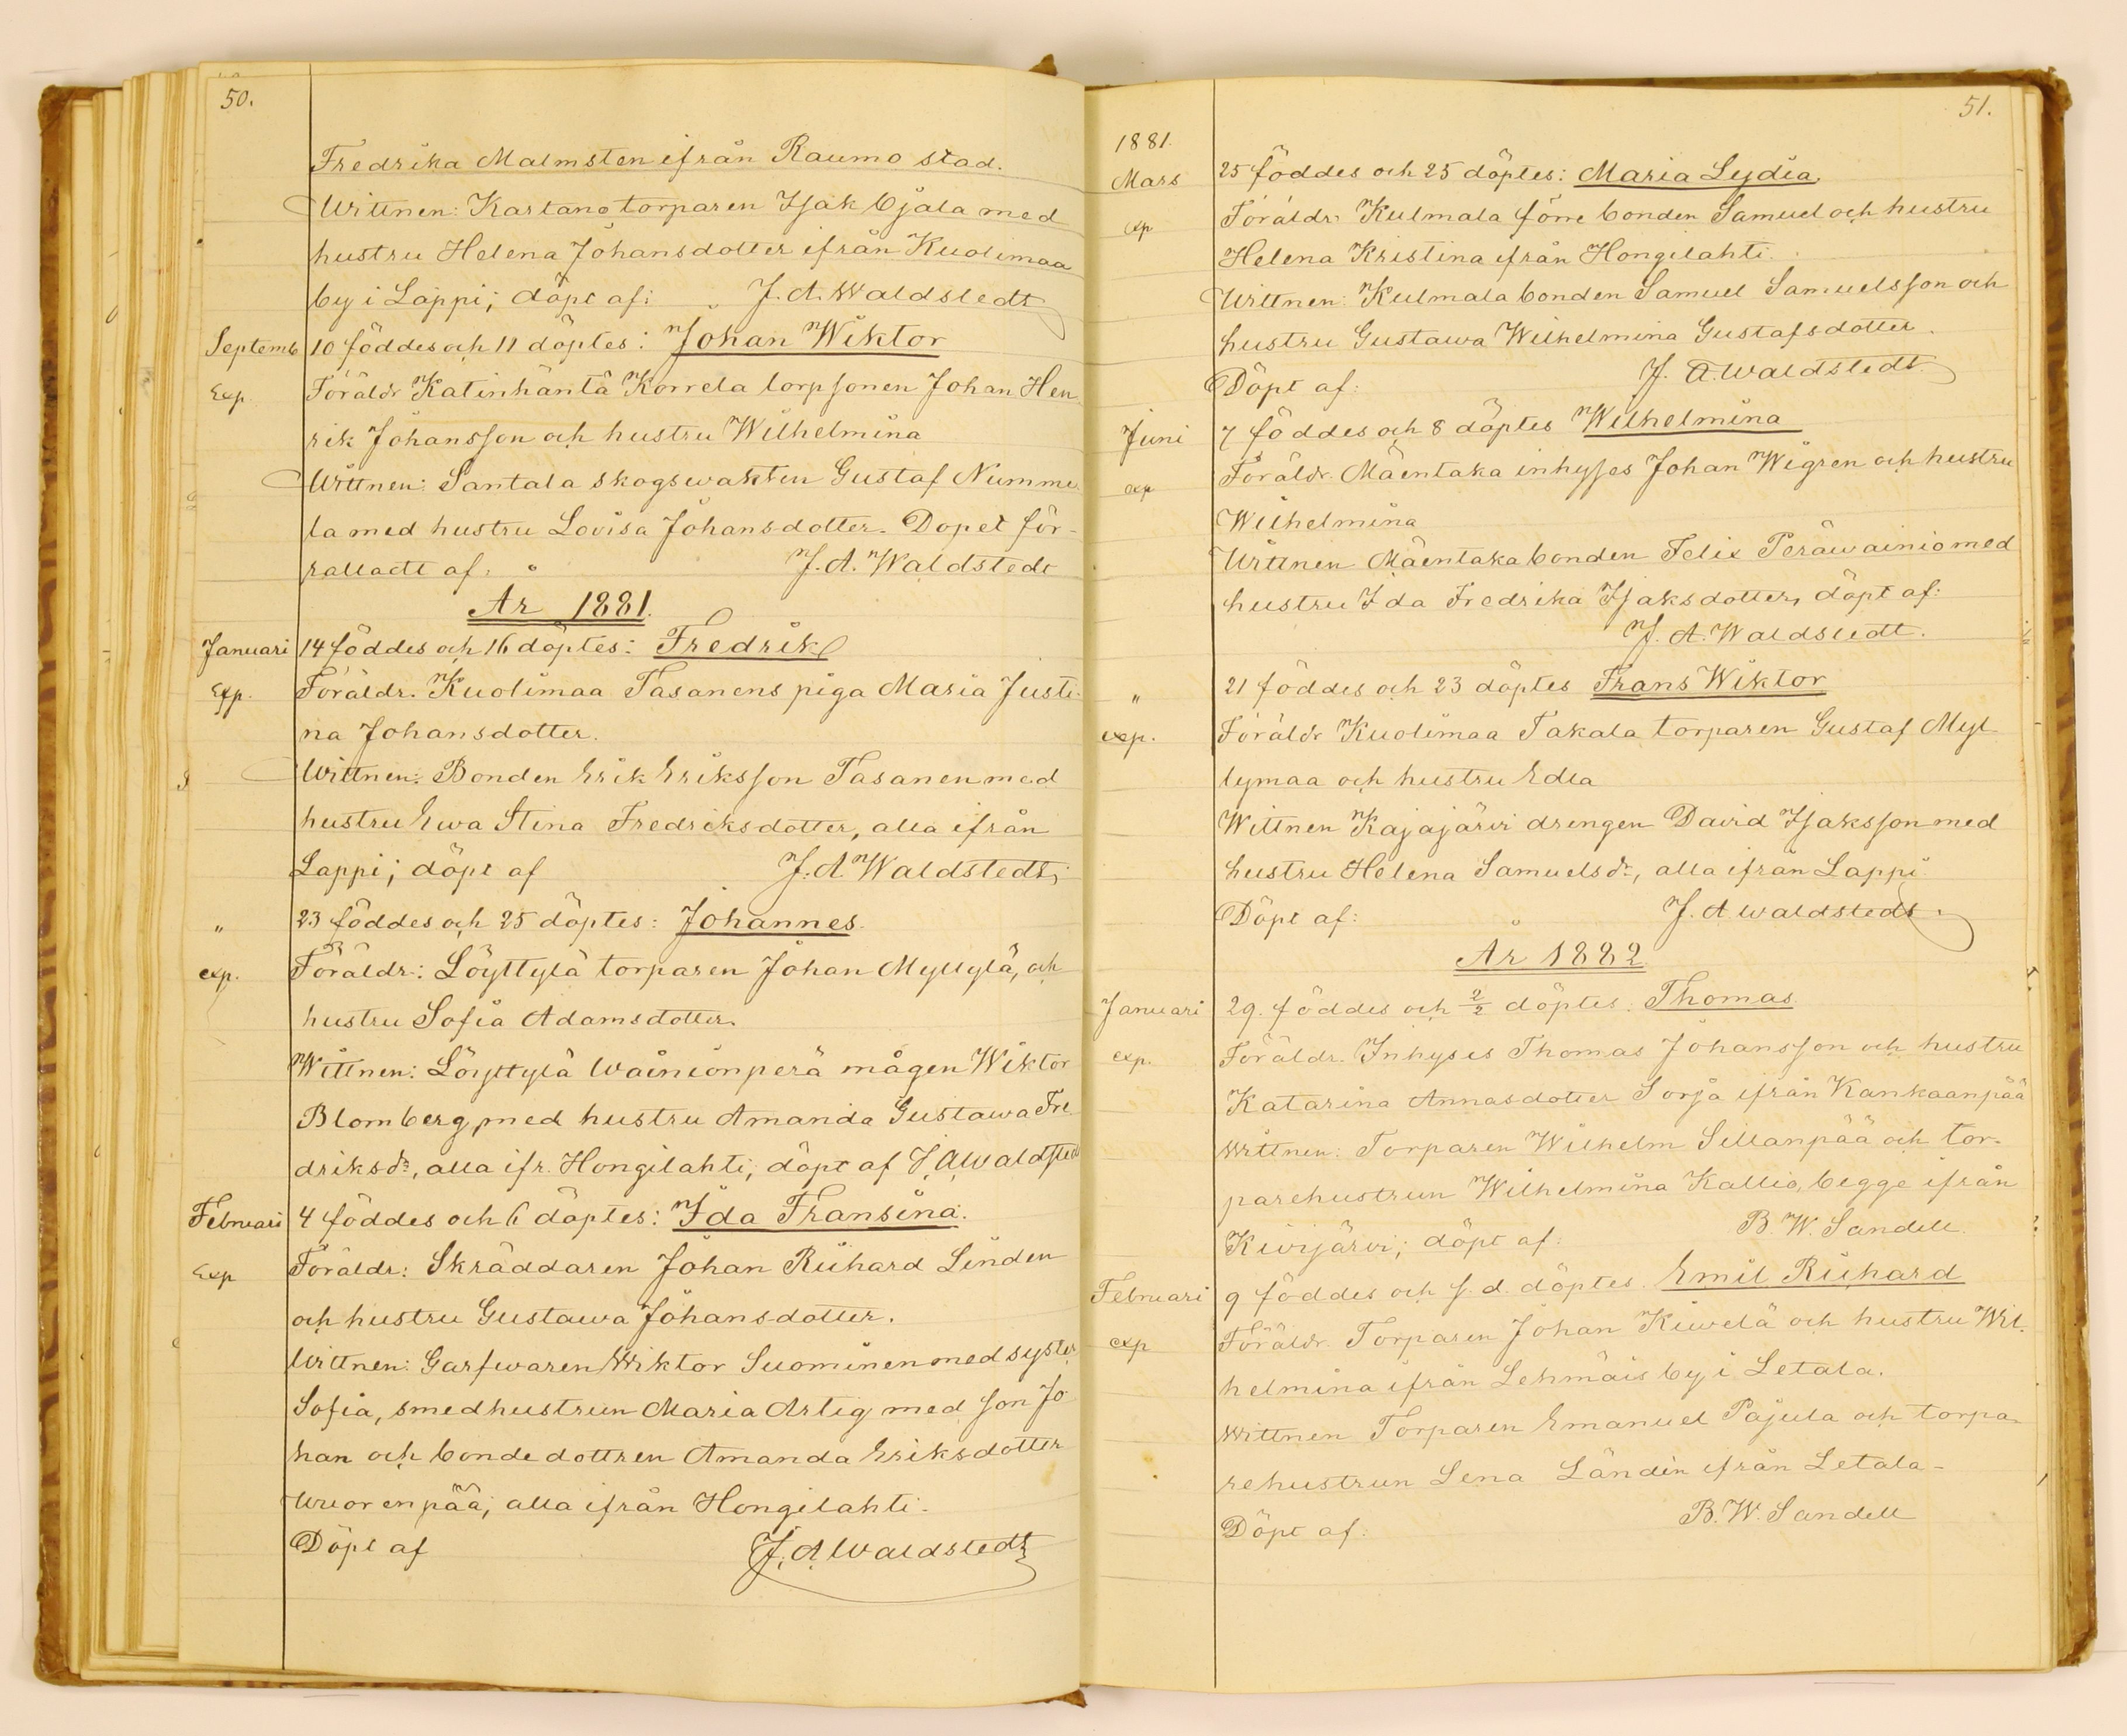 50.
Fredrika Malmsten ifrån Raumo stad.
Wittnen: Kartano torparen Isak Ojala med
hustru Helena Johansdotter ifrån Kuolimaa
by i Lappi; döpt af: J. A. Waldstedt
Septemb 10 föddes och 11 döptes: Johan Wiktor
Exp. Föräldr Katinhäntä Korrela torpsonen Johan Hen
rik Johansson och hustru Wilhelmina
Wittnen: Santala skogswakten Gustaf Numme
la med hustru Lovisa Johansdotter. Dopet för-
rättadt af: J. A. Waldstedt
År 1881.
Januari 14 föddes och 16 döptes: Fredrik
Exp. Föräldr. Kuolimaa Tasanens piga Maria Justi-
na Johansdotter.
Wittnen: Bonden Erik Eriksson Tasanen med
hustru Ewa Stina Fredriksdotter, alla ifrån
Lappi; döpt af J. A. Waldstedt
" 23 föddes och 25 döptes: Johannes.
exp. Föräldr: Löyttylä torparen Johan Myllylä, och
hustru Sofia Adamsdotter.
Wittnen: Löyttylä Wäinionperä mågen Wiktor
Blomberg med hustru Amanda Gustawa Fre
driksdr, alla ifr. Hongilahti; döpt af J. A. Waldsted
Februari 4 föddes och 6 döptes: Ida Fransina.
Exp Föräldr: Skräddaren Johan Richard Linden
och hustru Gustawa Johansdotter.
Wittnen: Garfwaren Wiktor Suominen med syster
Sofia, smedhustrun Maria Artig med son Jo
han och bondedottren Amanda Eriksdotter
Wuorenpää; alla ifrån Hongilahti.
Döpt af J. A. Waldstedt
51.
1881.
Mars 25 föddes och 25 döptes: Maria Lydia.
exp Föräldr. Kulmala förre bonden Samuel och hustru
Helena Kristina ifrån Hongilahti.
Wittnen: Kulmala bonden Samuel Samuelsson och
hustru Gustawa Wilhelmina Gustafsdotter.
Döpt af: J. A. Waldstedt.
Juni 7 föddes och 8 döptes Wilhelmina
exp Föräldr. Mäentaka inhyses Johan Wigren och hustru
Wilhelmina
Wittnen Mäentaka bonden Felix Peräwainio med
hustru Ida Fredrika Isaksdotter, döpt af:
J. A. Waldstedt.
" 21 föddes och 23 döptes Frans Wiktor
exp. Föräldr Kuolimaa Takala torparen Gustaf Myl
lymaa och hustru Edla
Wittnen Kajajärvi drengen David Isaksson med
hustru Helena Samuelsdr, alla ifrån Lappi.
Döpt af: J. A. Waldstedt.
År 1882
Januari 29. föddes och 2/2 döptes: Thomas.
exp. Föräldr. Inhyses Thomas Johansson och hustru
Katarina Annasdotter Sorja ifrån Kankaanpää
Wittnen: Torparen Wilhelm Sillanpää och tor-
parehustrun Wilhelmina Kallio, begge ifrån
Kivijärvi; döpt af: B. W. Sandell.
Februari 9 föddes och s. d. döptes. Emil Richard
exp Föräldr. Torparen Johan Kiwelä och hustru Wil.
helmina ifrån Lehmäis by i Letala.
Wittnen Torparen Emanuel Pajula och torpa-
rehustrun Lena Ländin ifrån Letala-
Döpt af: B. W. Sandell